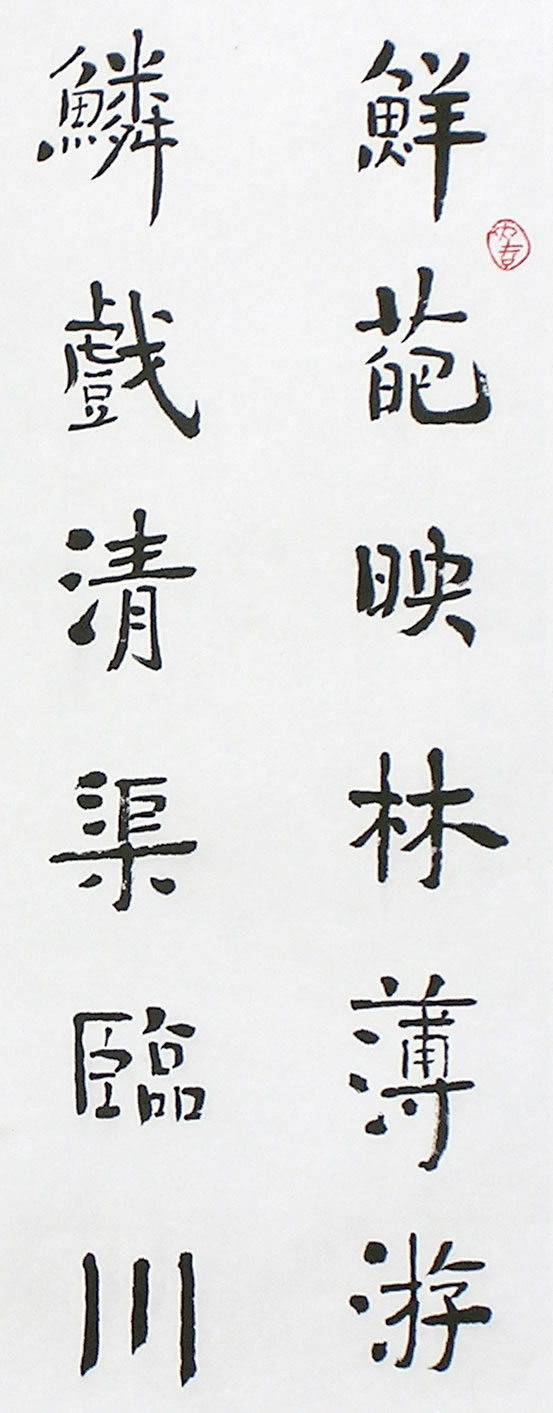 鮮葩映林薄游
鱗戲清渠臨川